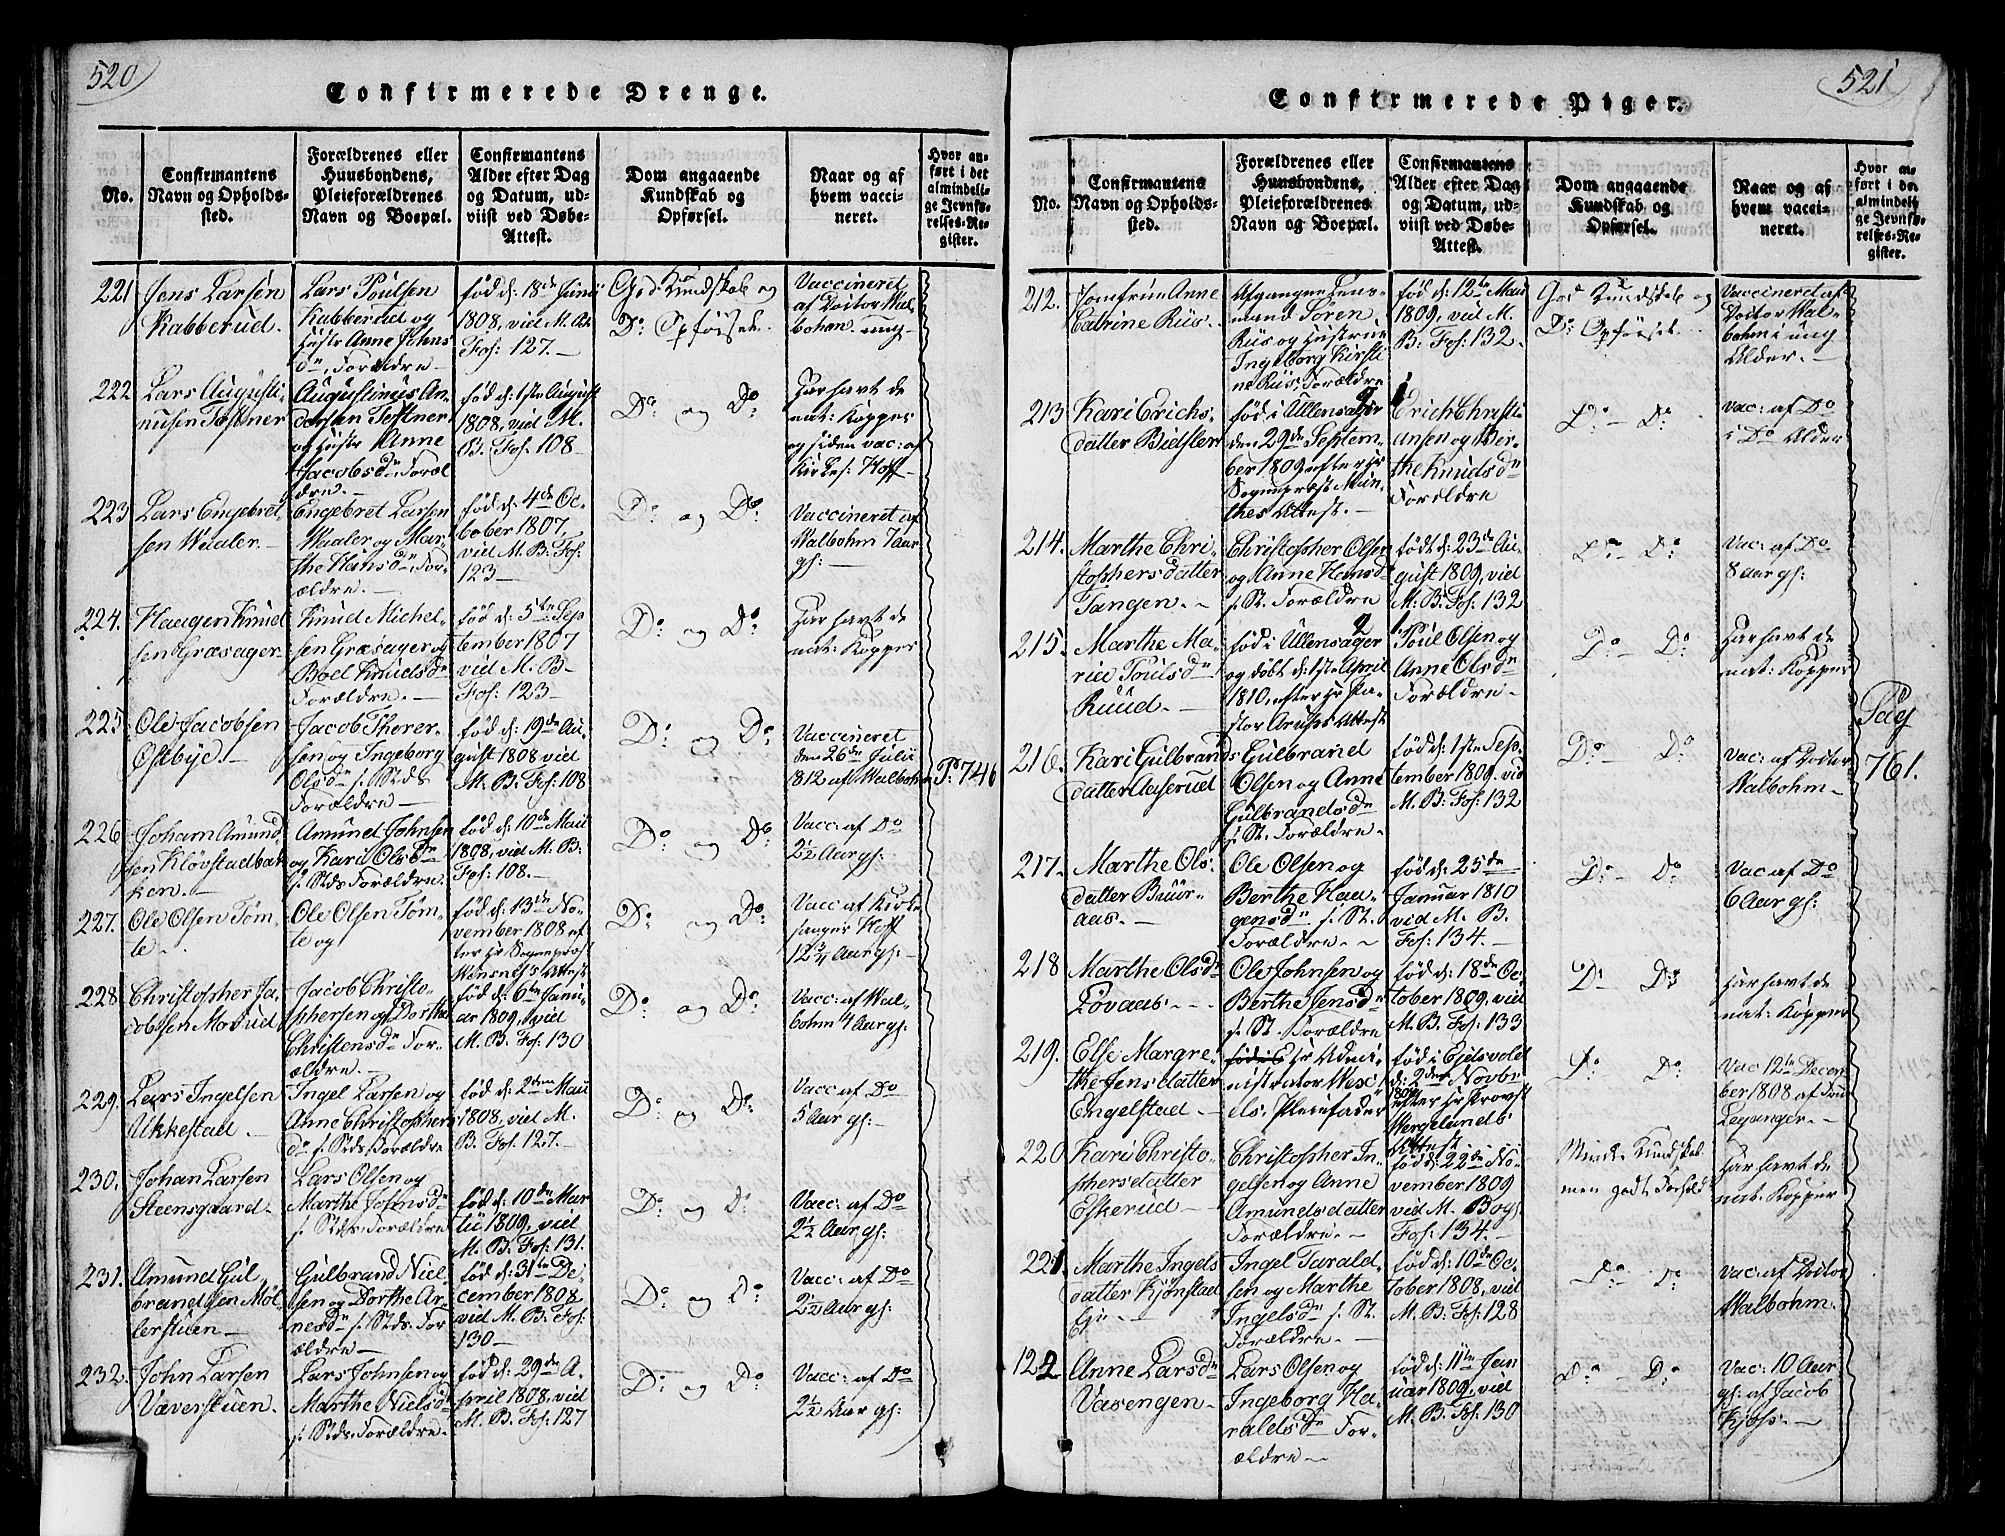 520
Confirmerede Drenge.
No.
Confirmantens
Navn og Opholds-
sted.
Forældrenes eller
Huusbondens,
Pleieforældrenes
Navn og Boepæl.
Confirmantens
Alder efter Dag
og Datum, ud-
viist ved Døbe-
Attest.
Dom angaaende
Kundskab og
Opførsel.
Naar og af
hvem vacci-
neret.
Hvor an-
ført i det
almindeli-
ge Jevnfø-
relses-Re-
gister.
221
Jens Larsen
Kabberud.
Lars Poulsen
Kabberud og
Hustr Anne Johns
dr, Forældre
fød d: 18de Junii
1808, vid M. B.
Fol: 127.
God Kundskab og
Do Opførsel
Vaccineret
af Doctor Wal-
bohm ung
222
Lars Augusti-
nusen Tostner
Augustinus An-
dersen Tostner
og Hustr Anne
Jacobsdr Foræl
dre.
fød d: 1ste August
1808, vid M.
B. Fol: 108
Do og Do
Har havt de
nat: Kopper
og siden vac: af
Kirkes: Hoff
223
Lars Engebret-
sen Waaler.
Engebret Larsen
Waaler og Mar-
the Hansdr For-
ældre.
fød d: 4de Oc-
tober 1807,
vid M. B: Fol:
123
Do og Do
Vaccineret af
Walbohm 7 Aar
gl:
224.
Haagen Knud
sen Græsager
Knud Michel-
sen Græsager og
Boel Knudsdr
Forældre.
fød d: 5te Sep
tember 1807
vid M. B
Fol: 123
Do og Do
Har havt de
nat: Kopper
225
Ole Jacobsen
Østbye.
Jacob Thorer-
sen og Ingeborg
Olsdr f. Stds
Forældre
fød d: 19de Au-
gust 1808 vid
M. B: Fol: 108
Do og Do
Vaccineret
den 26de Julii
1812 af Walbohm
P: 746
226
Johan Amund
sen Kløvstadbak
ken.
Amund Johnsen
og Kari Olsdr
f. Stds Forældre.
fød d: 10de Maii
1808, vid M: B:
Fol: 108.
Do og Do
Vacc: af Do
2½ Aar gl:
227.
Ole Olsen Tøm-
te.
Ole Olsen Tøm-
te og
fød d: 13de No-
vember 1808 ef
ter Hr Sognepræst
Attest
Do og Do
Vacc af Kirke
sanger Hoff
12¾ Aar gl:
228
Christopher Ja-
cobsen Morud
Jacob Christo-
phersen og Dorthe
Christensdr For-
ældre.
fød d: 6te Janu-
ar 1809, vid
M. B. Fol: 130
Do og Do
Vacc: af Wal-
bohm 4 Aar gl:
229.
Lars Ingelsen
Ukkestad.
Ingel Larsen og
Anne Christophers
dr f. Stds Forældre
fød d: 2den Maii
1808, vid M.
B. Fol: 127.
Do og Do
Vacc af Do
5 Aar gl:
230.
Johan Larsen
Steensgaard.
Lars Olsen og
Marthe Johnsdr
f. Stds Forældre
fød d: 10de Mar
tii 1809, vid
M. B: Fol: 131.
Do og Do
Vacc: af Do
2½ Aar gl:
231.
Amund Gul-
brandsen Møl-
lerstuen
Gulbrand Niel-
sen og Dorthe Ar-
nesdr f. Stds. For
ældre
fød d: 31te De-
cember 1808,
vid M. B: Fol:
130
Do og Do
Vacc: af Do
2½ Aar gl:
232.
John Larsen
Væverstuen.
Lars Johnsen og
Marthe Nielsdr
f. Stds. Forældre.
fød d: 29de A-
pril 1808, vid
M. B: Fol: 127
Do og Do
Vacc: af Do
2½ Aar gl:
521
Confirmerede Piger.
No.
Confirmantens
Navn og Opholds-
sted.
Forældrenes eller
Huusbondens,
Pleieforældrenes
Navn og Boepæl.
Confirmantens
Alder efter Dag
og Datum, ud-
viist ved Døbe-
Attest.
Dom angaaende
Kundskab og
Opførsel.
Naar og af
hvem vacci-
neret.
Hvor an-
ført i det
almindeli-
ge Jevnfø-
relses-Re-
gister.
212.
Jomfrue Anne
Catrine Riis.
Afgangne Lens-
mand Søren
Riis og Hustrue
Ingeborg Kirsti
ne Riis Forældre
fød d: 12te Maii
1809, vid M.
B: Fol: 132.
God Kundskab og
Do Opførsel
Vaccineret af
Doctor Wal-
bohm i ung
Alder.
213
Kari Erichs-
datter Bidsler
fød i Ullensager
den 29de Septem-
ber 1809 efter Hr
Sognepræst Mün-
thes Attest.
Erich Christi
ansen og Ber-
the Knudsdr
Forældre
Do Do
vac: af Do
i Do Alder
214.
Marthe Chri-
stophersdatter
Tangen.
Christopher Olsen
og Anne Hansdr
f. St. Forældre
født d: 23de Au-
gust 1809, vid
M: B: Fol: 132
Do Do
Vac: af Do
8 Aar gl:
215.
Marthe Ma-
rie Poulsdr
Ruud.
fød i Ullensager
og døbt d: 1ste April
1810, efter Hr Pa-
stor Arups Attest
Poul Olsen og
Anne Olsdr
Forældre.
Do Do
Har havt de
nat: Kopper
216.
Kari Gulbrands
datter Aaserud
Gulbrand
Olsen og Anne
Gulbrandsdr
f. St. Forældre.
fød d: 1ste Sep-
tember 1809. vid
M. B. Fol: 132
Do Do
Vac: af Doctor
Walbohm
Pag
761.
217.
Marthe Ols-
datter Buur-
aas.
Ole Olsen og
Berthe Haa-
gensdr f. St.
Forældre.
fød d: 25de
Januar 1810
vid M. B.
Fol: 134.
Do Do
Vac af Do
6 Aar gl:
218
Marthe Olsdr
Løvaas.
Ole Johnsen og
Berthe Jensdr
f. St. Forældre
fød d: 18de Oc-
tober 1809, vid
M. B. Fol: 133
Do Do
Har havt de
nat: Kopper
219.
Else Margre-
the Jensdatter
Engelstad
Hr Admi-
nistrator Wex-
els. Pleiefader
fød i Eidsvold
d: 2den Novbr
1809 efter Hr Provst
Wergelands
Attest
Do Do
Vac 12te Decem-
ber 1808 af
Leganger.
220
Kari Christo-
phersdatter
Eskerud
Christopher In-
gelsen og Anne
Amundsdatter
Forældre.
fød d: 22de No-
vember 1809
vid M. Bogs
Fol: 134.
Mindre Kundskab
men godt Forhold
Har havt de
nat: Kopper
221.
Marthe Ingels
datter Kjønstad
Eje
Ingel Tarald-
sen og Marthe
Ingelsdr f. St.
Forældre.
fød d: 10de Oc-
tober 1808, vid
M. B. Fol: 128
Do Do
Vac: af Doctor
Walbohm.
122
Anne Larsdr
Vasengen.
Lars Olsen og
Ingeborg Ha-
raldsdr For-
ældre
fød d: 11te Jan
uar 1809, vid
M. B. Fol: 130
Do Do
Vac: 10 Aar
gl: af Jacob
Kjøls.